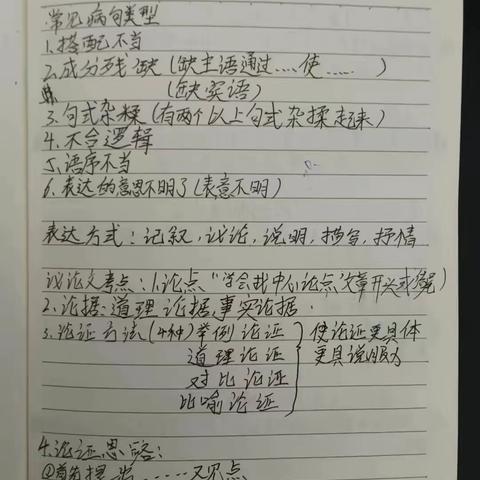 常见病句类型
1.搭配不当
2.成分残缺(缺主语通过....使......)
(缺宾语)
3.句式杂糅(有两个以上句式杂揉起来)
4.不合逻辑
5.语序不当
6.表达的意思不明了(表意不明)
表达方式:记叙,议论,说明,描写,抒情
议论文考点:1.论点"学会找中心论点"文章开头或结尾)
2.论据:道理论据,事实论据.
3.论证方法(4种)举例论证 使论证更具体
道理论证 更具说服力
对比论证
比喻论证
4.论证思路:
①首先提出......观点